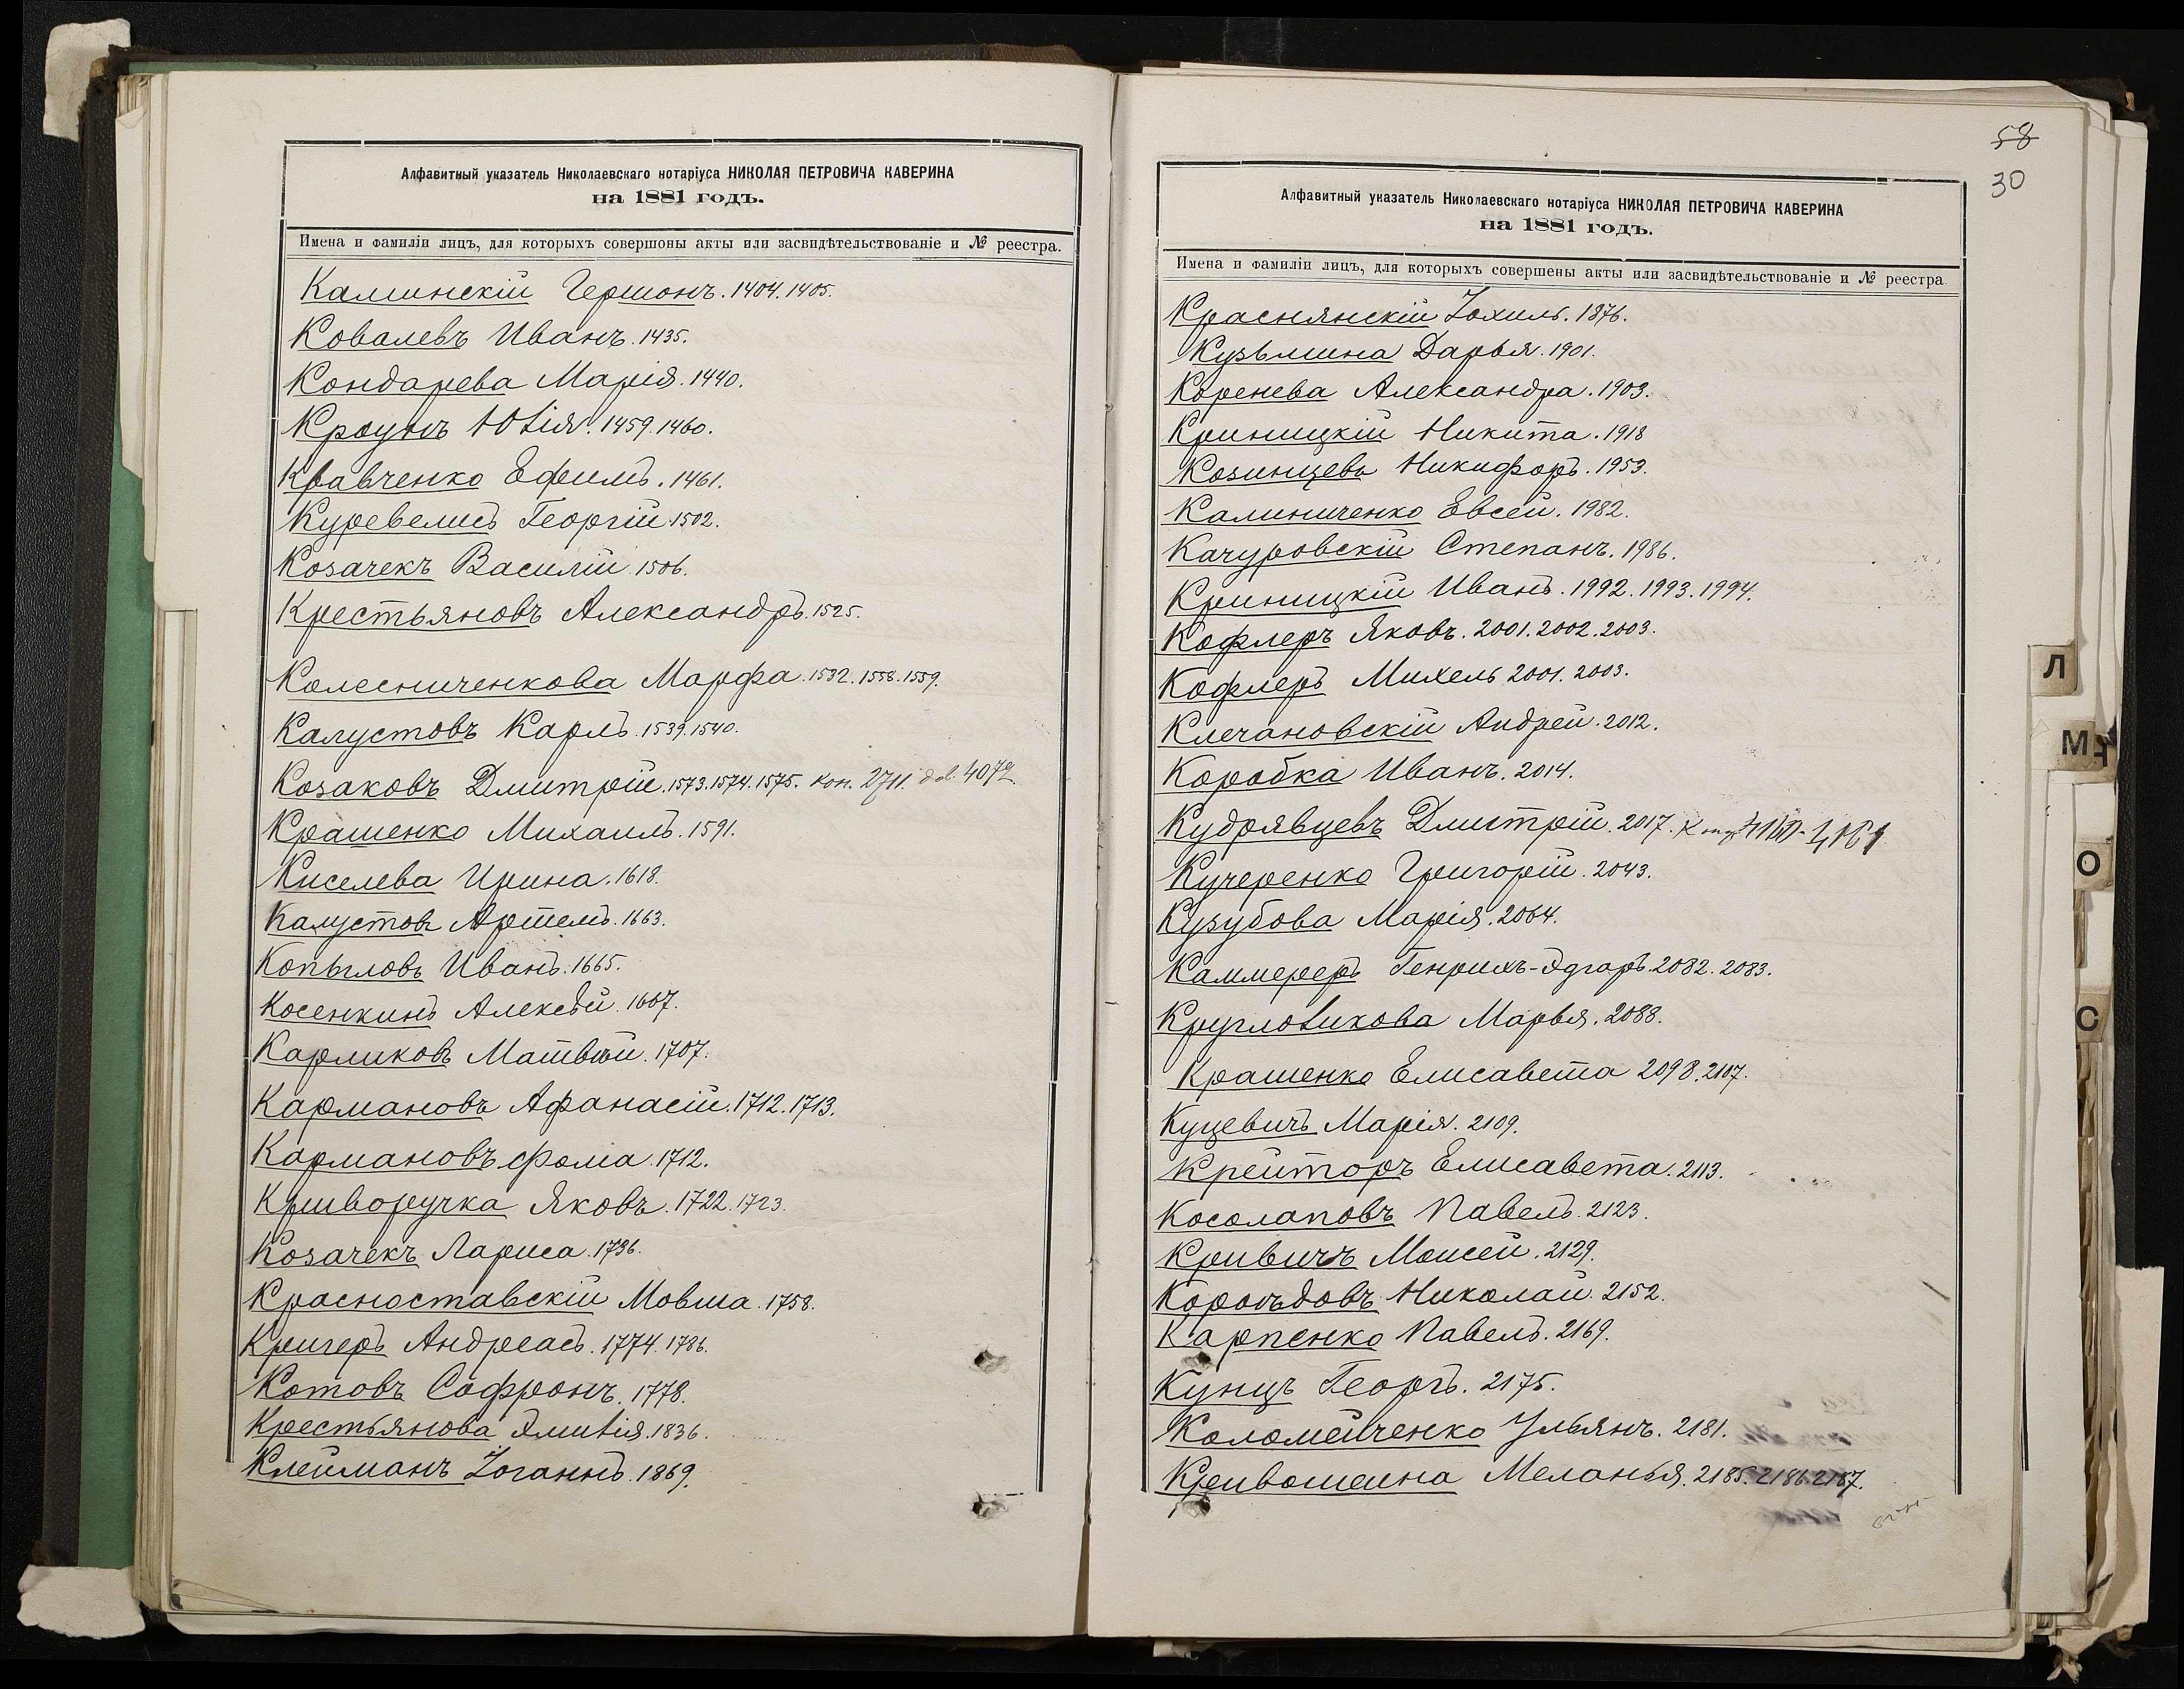 Алфавитный указатель Николаевскаго нотаріуса НИКОЛАЯ ПЕТРОВИЧА КАВЕРИНА
на 1881 годъ.
Имена и фамиліи лицъ, для которыхъ совершоны акты или засвидѣтельствованіе и № реестра.
Каминскій Гершонъ. 1404. 1405.
Ковалевъ Иванъ. 1435.
Кондарева Марія. 1440.
Кроунъ Юлія. 1459. 1460.
Кравченко Ефимъ. 1461.
Куревелисъ Георгій 1502.
Козачекъ Василій. 1506.
Крестьяновъ Александръ. 1525.
Колесниченкова Марфа. 1532. 1558. 1559.
Калустовъ Карлъ. 1539. 1540.
Козаковъ Дмитрій. 1573. 1574. 1575. коп. 2711. 4072
Крашенко Михаилъ. 1591.
Киселева Ирина. 1618.
Калустовъ Артемъ. 1663.
Копыловъ Иванъ. 1665.
Косенкинъ Алексѣй. 1667.
Карликовъ Матвѣй. 1707.
Кармановъ Афанасій. 1712. 1713.
Кармановъ Фома. 1712.
Криворучка Яковъ. 1722. 1723.
Козачекъ Лариса. 1736.
Красноставскій Мовша. 1758.
Кригеръ Андреасъ. 1774. 1786.
Котовъ Софронъ. 1778.
Крестьянова Эмилія. 1836.
Клейманъ Іоганнъ. 1869.
58
30
Алфавитный указатель Николаевскаго нотаріуса НИКОЛАЯ ПЕТРОВИЧА КАВЕРИНА
на 1881 годъ.
Имена и фамиліи лицъ, для которыхъ совершены акты или засвидѣтельствованіе и № реестра.
Краснянскій Іохиль. 1876.
Кузьмина Дарья. 1901.
Коренева Александра. 1903.
Криницкій Никита. 1918
Козинцевъ Никифоръ. 1953.
Калиниченко Евсей. 1982.
Качуровскій Степанъ. 1986.
Криницкій Иванъ. 1992. 1993. 1994.
Кофлеръ Яковъ. 2001. 2002. 2003.
Кофлеръ Михель 2001. 2003.
Клечановскій Андрей. 2012.
Коробка Иванъ. 2014.
Кудрявцевъ Дмитрій. 2017.
Кучеренко Григорій. 2043.
Кузубова Марія. 2064.
Каммереръ Генрихъ-Эдгаръ. 2082. 2083.
Кругликова Марья. 2088.
Крашенко Елисавета 2098. 2107.
Куцевичъ Марія. 2109.
Крейторъ Елисавета. 2113.
Косолаповъ Павелъ. 2123.
Кривичъ Моисей. 2129.
Николай. 2152.
Карпенко Павелъ. 2169.
Кунцъ Георгъ. 2175.
Коломейченко Ульянъ. 2181.
Кривошеина Меланья. 2185. 2186. 2187.
Л
М
О
С